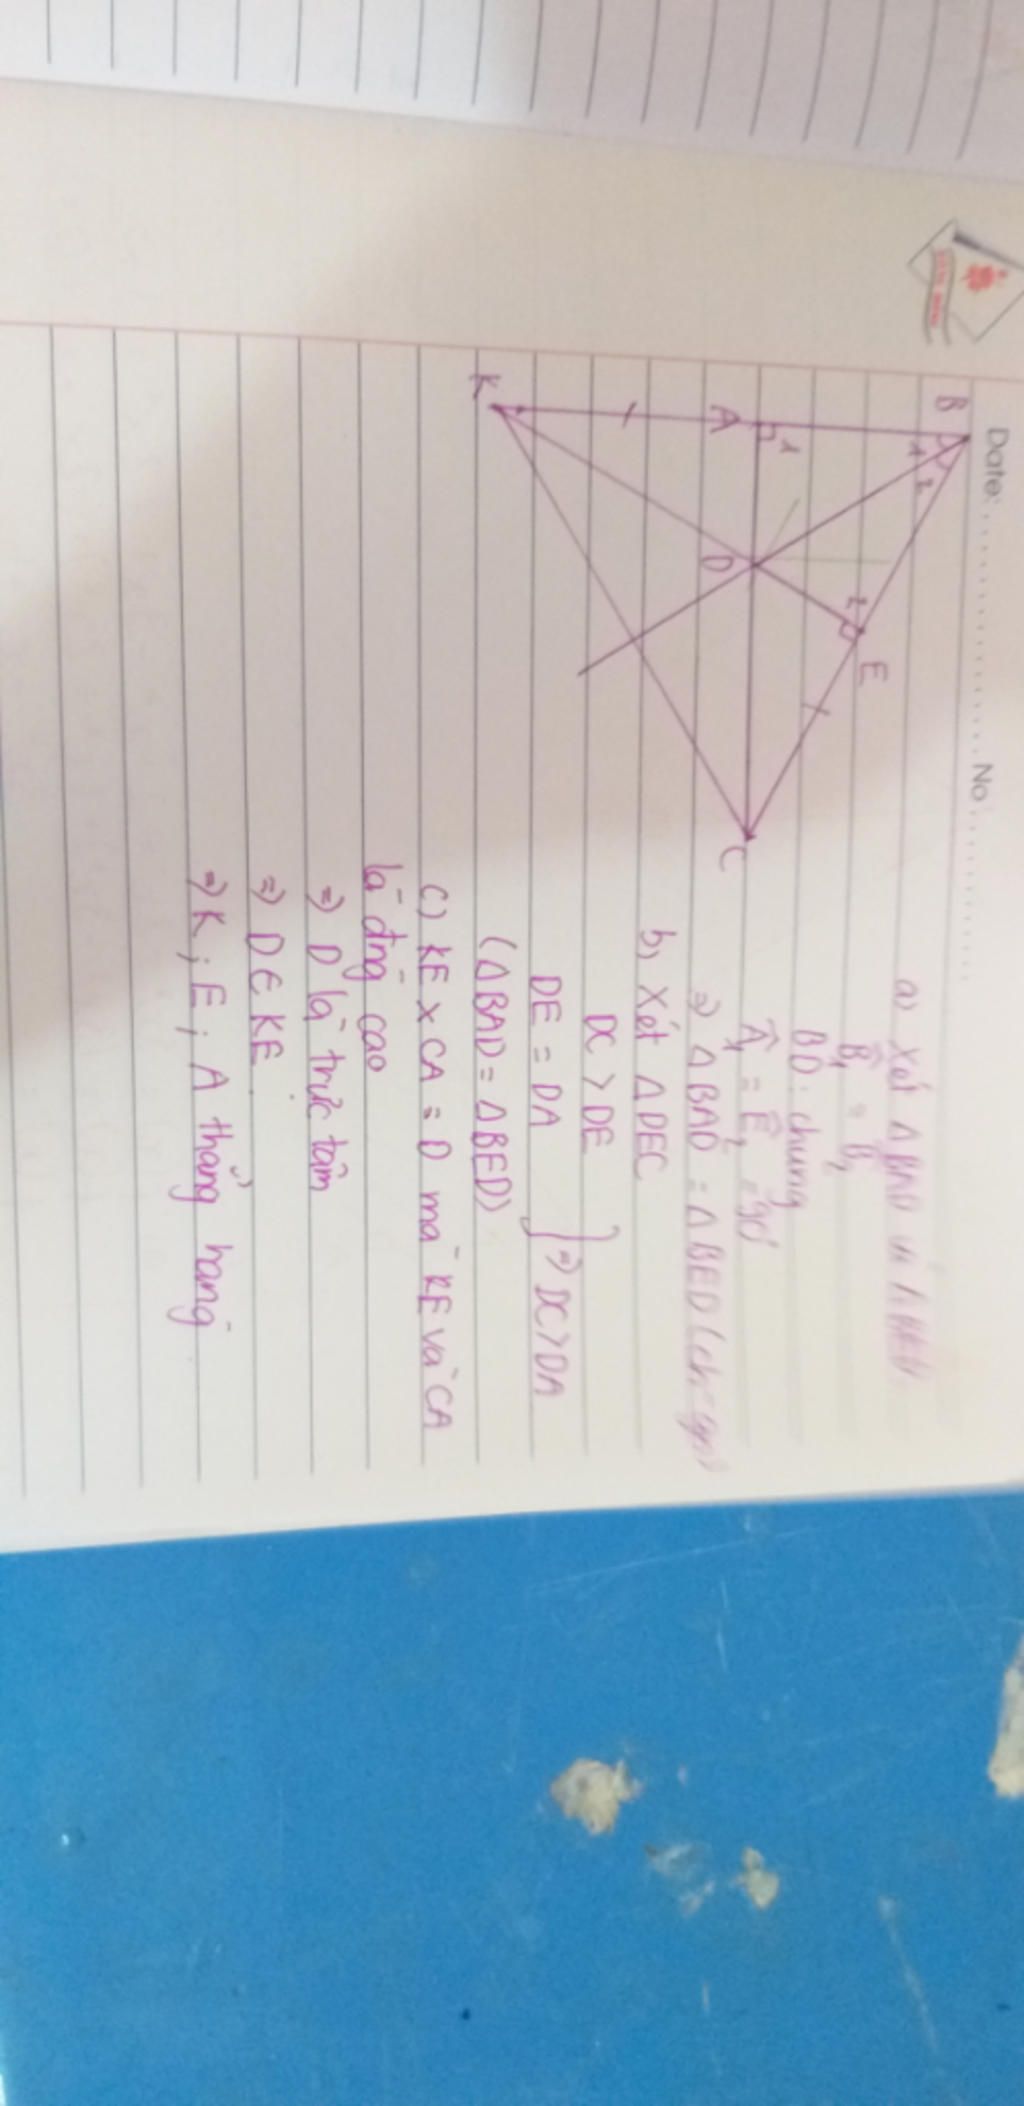 Date: No
B
1
2
E
2
1
A
D
C
K
a) Xét Δ BAD và Δ BED
B̂₁ = B̂₂
BD : chung
Â₁ = Ê₂ = 90°
⇒ Δ BAD = Δ BED (ch-gn)
b, Xét Δ DEC
DC > DE
DE = DA } ⇒ DC > DA
(Δ BAD = Δ BED)
c) KE x CA = D mà KE và CA
là đng cao
⇒ D là trực tâm
⇒ D ∈ KE
⇒ K ; E ; A thẳng hàng